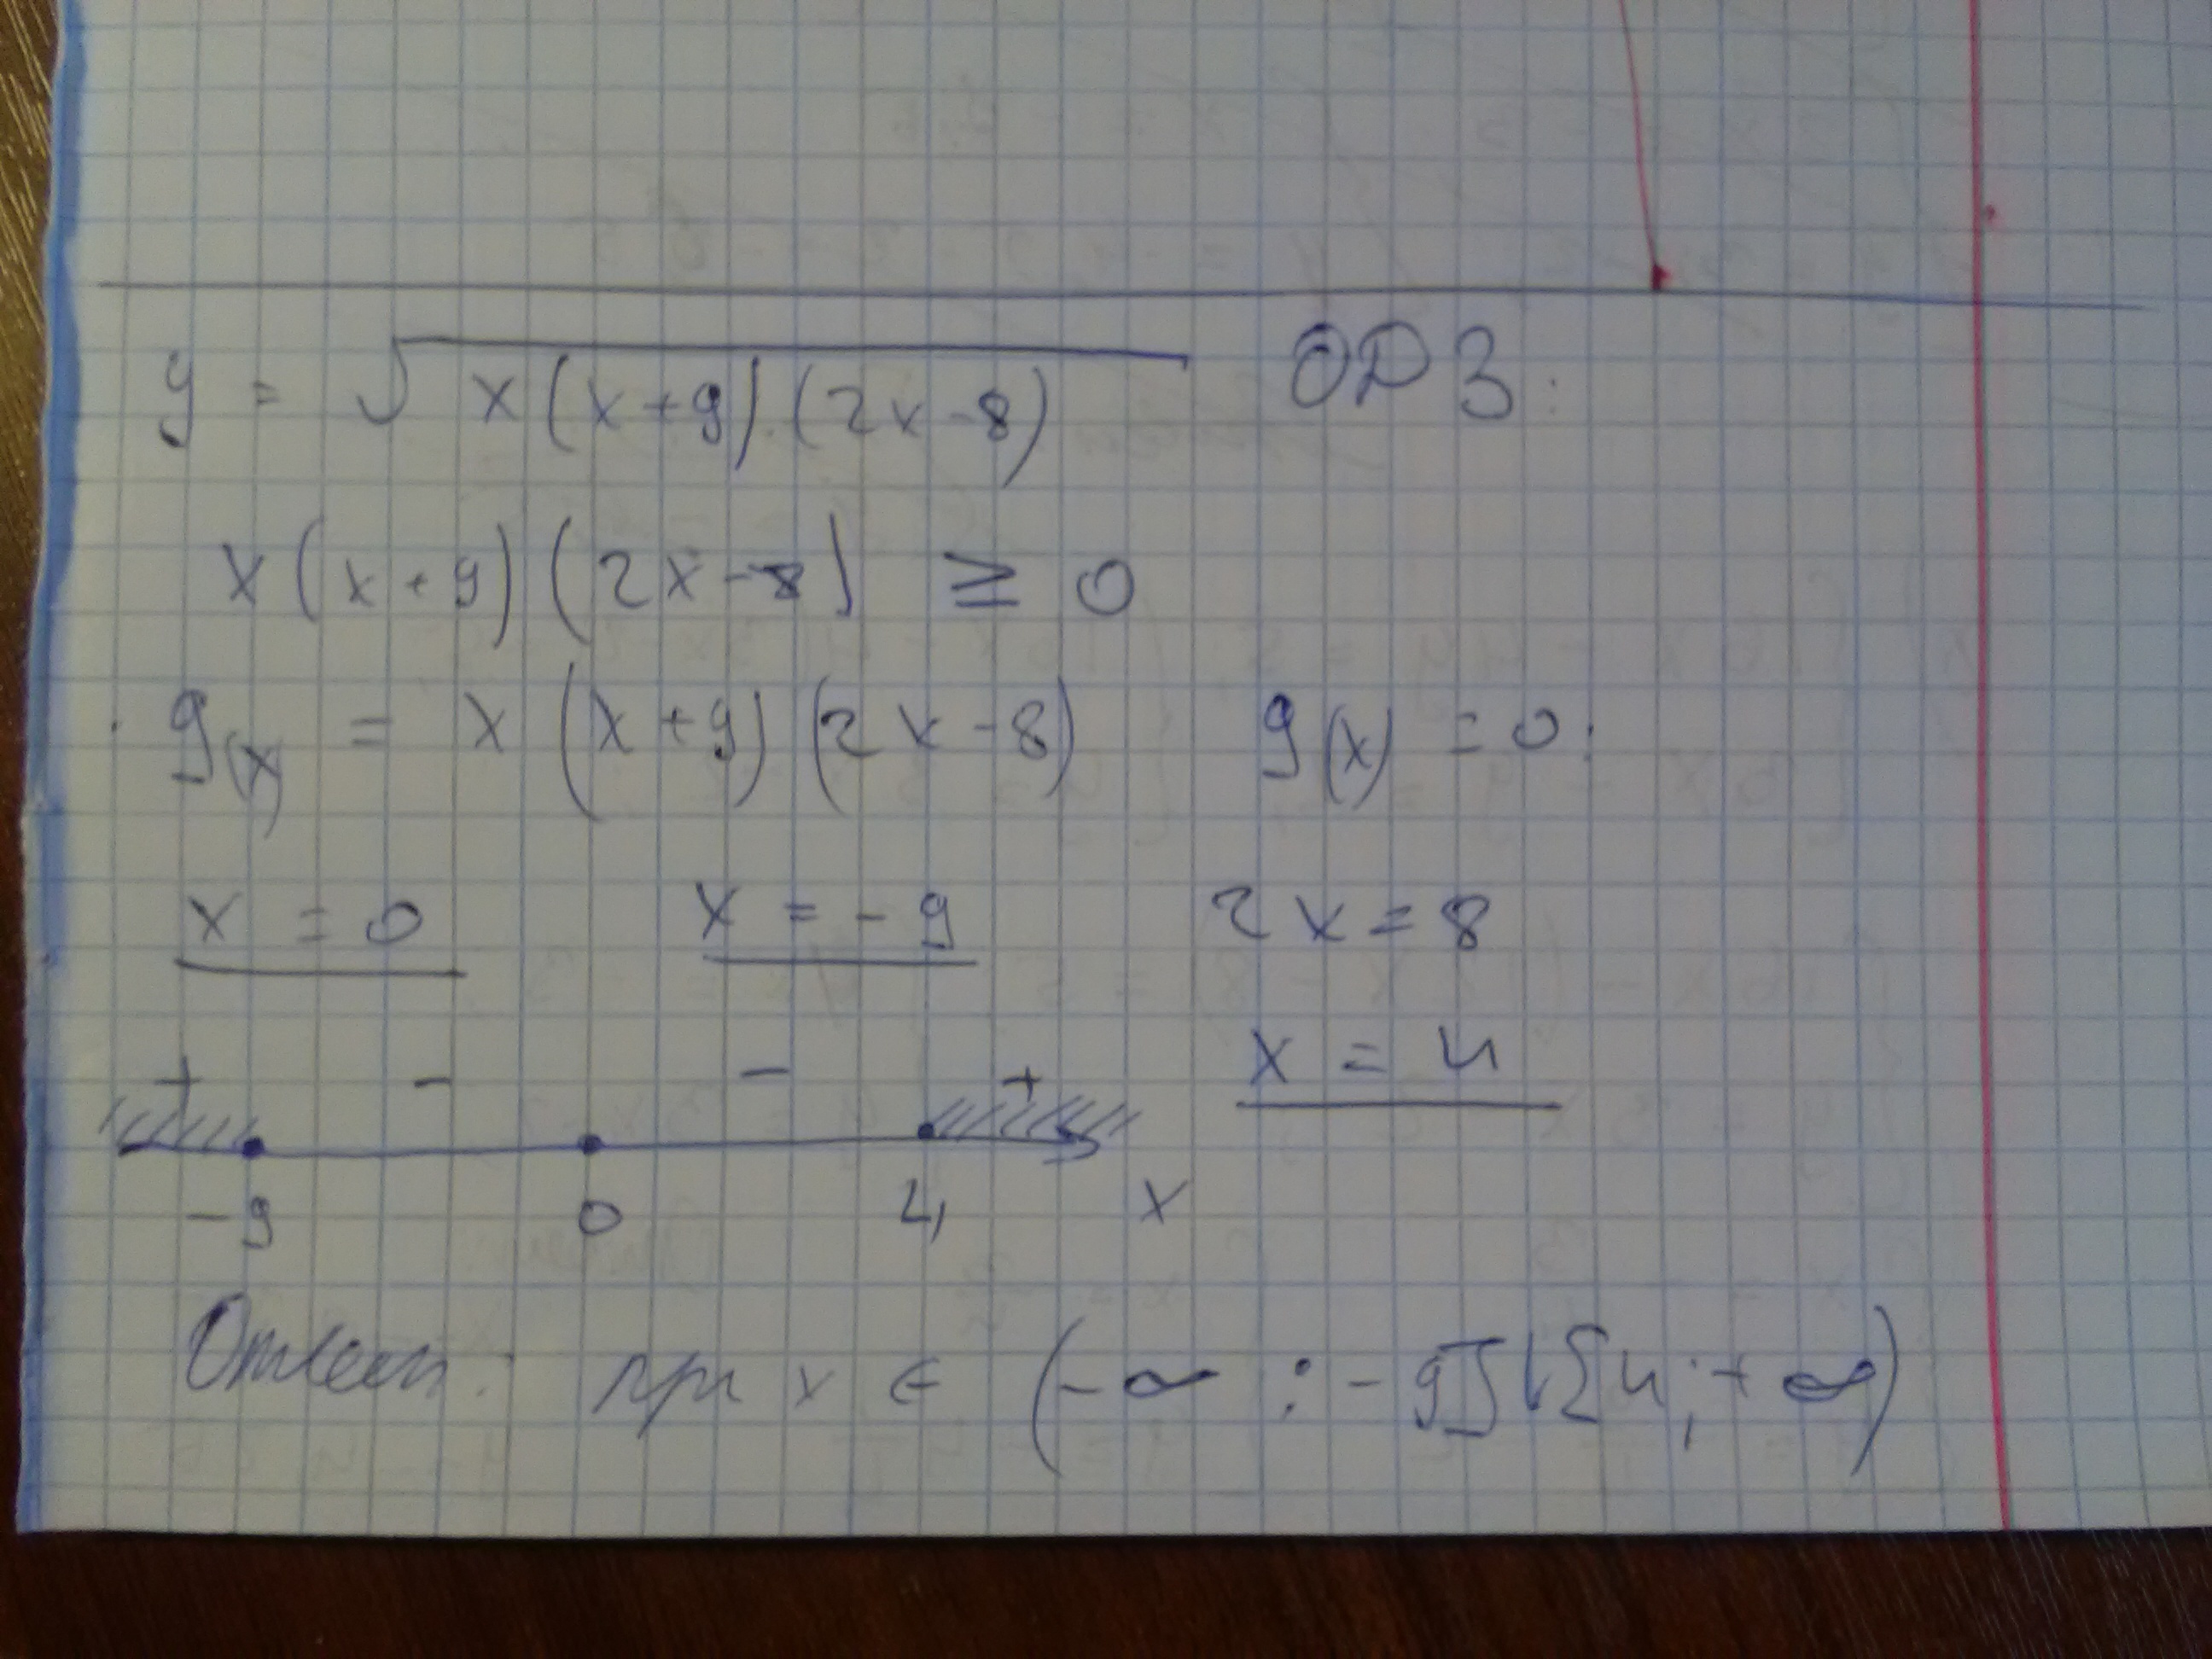 y = √x(x+9)(2x-8) ОДЗ:
x(x+9)(2x-8) ≥ 0
g(x) = x(x+9)(2x-8) g(x) = 0:
x = 0 x = -9 2x = 8
x = 4
+ - - +
-9 0 4 x
Ответ: при x ∈ (-∞ ; -9]∪[4; +∞)